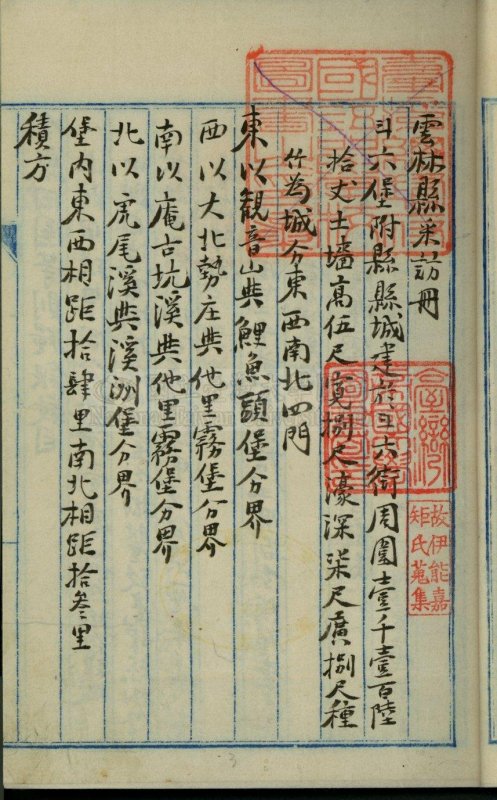 雲林縣采訪冊
斗六堡附縣縣城建於斗六街周圍壹千壹百陸
拾丈土墻高伍尺寬捌尺濠深柒尺廣捌尺種
竹為城分東西南北四門
東以觀音山與鯉魚頭堡分界
西以大北勢庄與他里霧堡分界
南以庵古坑溪與他里霧堡分界
北以虎尾溪與溪洲堡分界
堡內東西相距拾肆里南北相距拾叁里
積方
故伊能嘉
矩氏蒐集
3